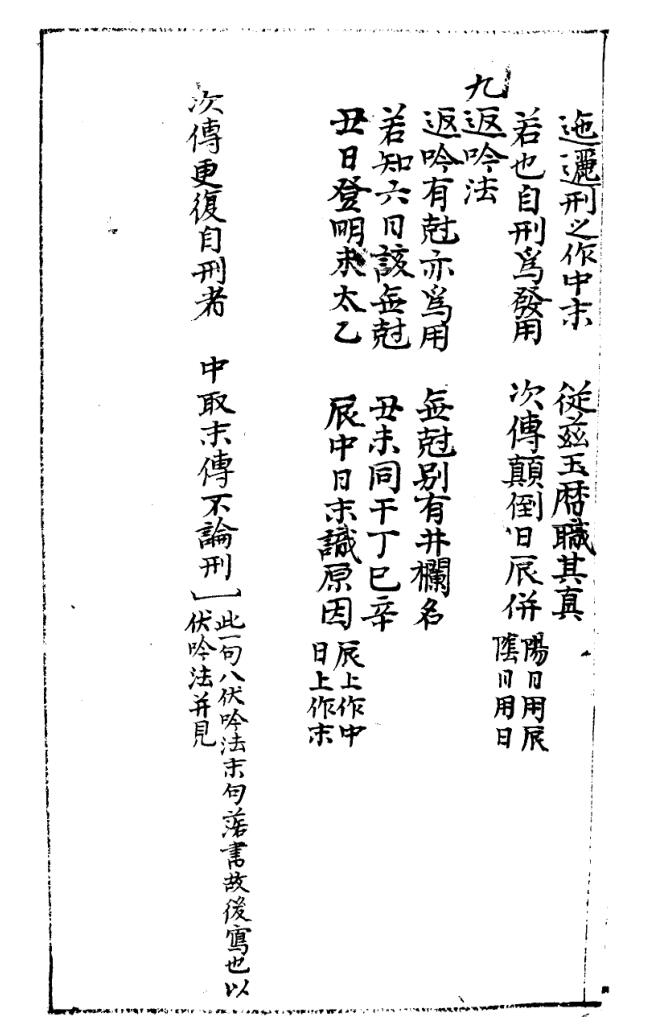 迤邐刑之作中末　從茲玉曆職其真
若也自刑爲發用　次傳顛倒日辰併 陽日用辰 陰日用日
九返吟法
返吟有尅亦爲用　無尅別有井欄名
若知六日該無尅　丑未同干丁巳辛
丑日登明未太乙　辰中日末識原因 辰上作中 日上作末
次傳更復自刑者　中取末傳不論刑 此一句八伏吟法末句落書故後寫也以 伏吟法并見